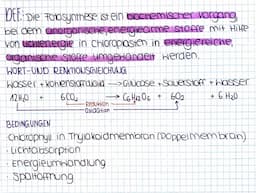 IDEE: Die Fotosynthese ist ein biochemischer Vorgang,
bei dem anorganische, energiearme Stoffe mit Hilfe
von Lichtenergie in Chloroplasten in energiereiche,
organische Stoffe umgewandelt werden.
WORT- UND REAKTIONSGLEICHUNG
Wasser + Kohlenstoffdioxid → Glucose + Sauerstoff + Wasser
12 H₂O + 6 CO₂ → C₆H₁₂O₆ + 6 O₂ + 6 H₂O
Reduktion
Oxidation
BEDINGUNGEN
Chlorophyll in Thylakoidmembran (Doppelmembran)
· Lichtabsorption
· Energieumwandlung
· Spaltöffnung